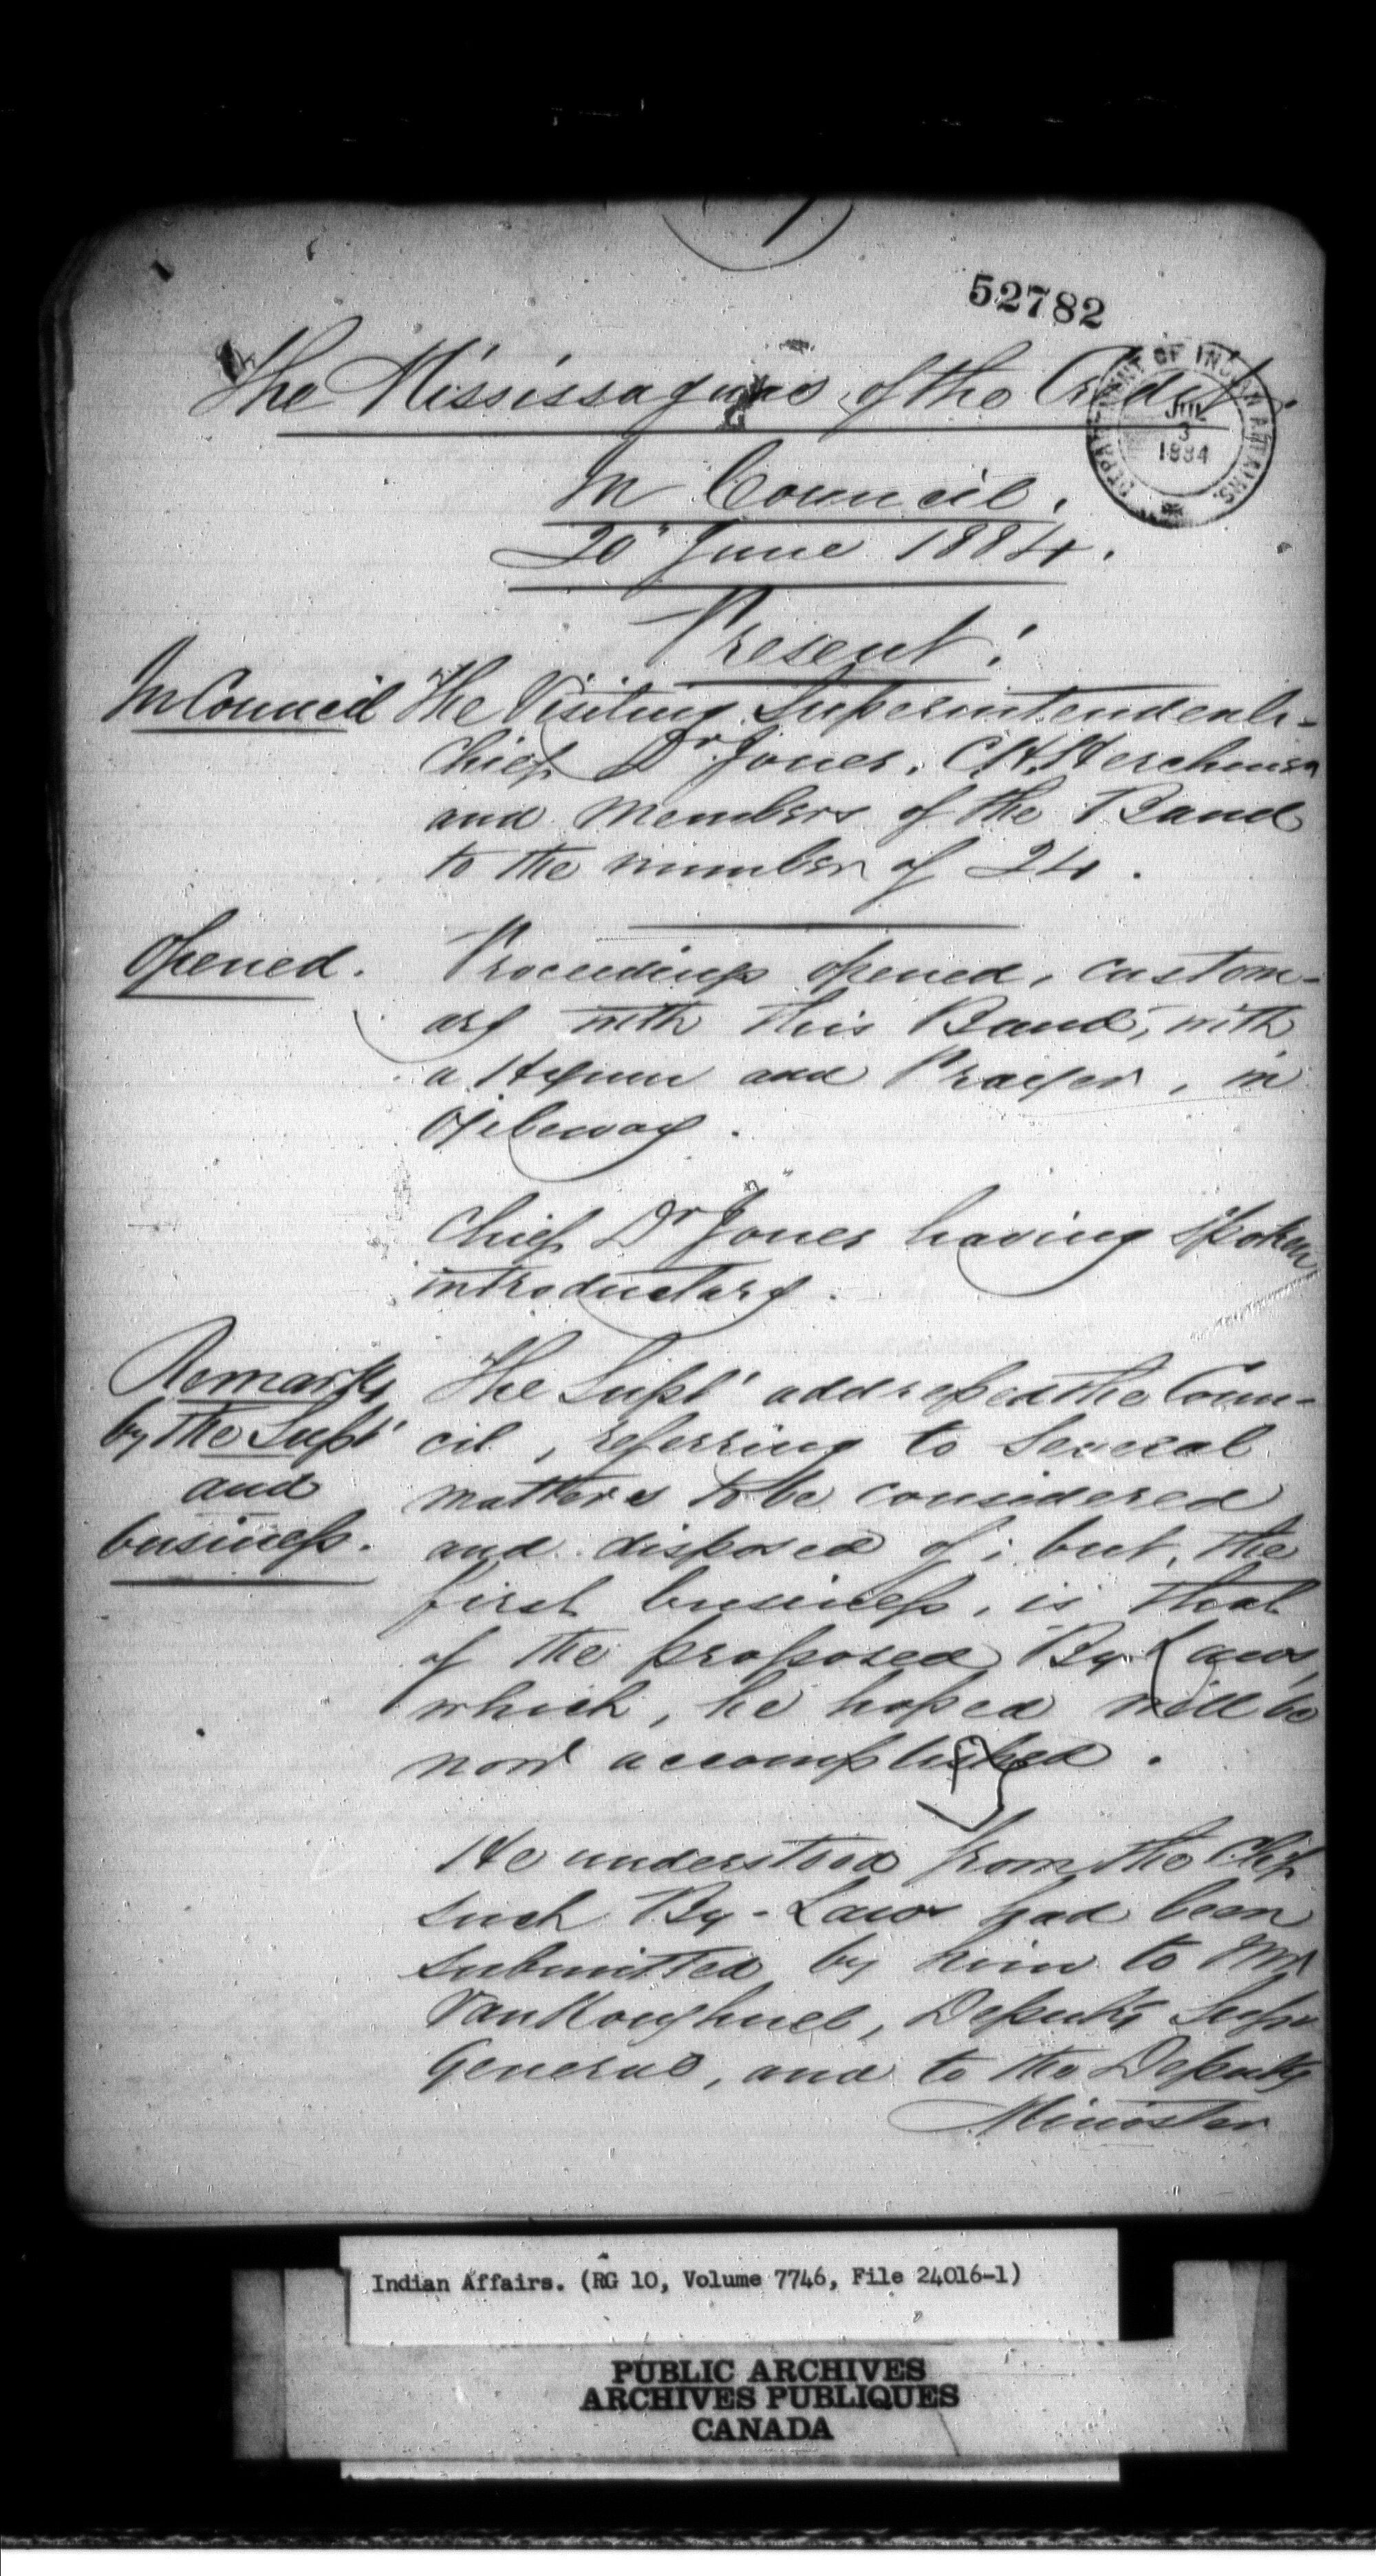 1
52782
The Mississaguas of the Credit.
DEPARTMENT OF INDIAN AFFAIRS.
JUL
3
1884
In Council.
20" June 1884.
Present:
In Council The Visiting Superintendent-
Chief Dr Jones, C.H. Herchmer
and members of the Band
to the number of 24.
Opened. Proceedings opened, custom-
ary with this Band, with
a Hymn and Prayer, in
Ojibeway.
Chief Dr Jones having spoken
introductory.
Remarks The Supt addressed the Coun-
by the Supt cil, referring to several
and matters to be considered
business. and disposed of; but, the
first business, is that
of the proposed By-Laws,
which, he hoped will be
now accomplished.
He understood from the Chief
such By-Laws had been
submitted by him to Mr
VanKoughnet, Deputy Supt
General, and to the Deputy
Minister
Indian Affairs. (RG 10, Volume 7746, File 24016-1)
PUBLIC ARCHIVES
ARCHIVES PUBLIQUES
CANADA